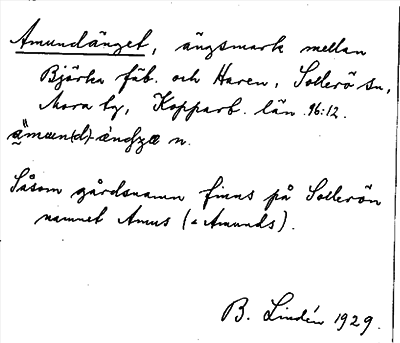 Amundänget, ängsmark mellan
Björka fäb. och Haven, Sollerö sn,
Mora tg, Kopparb. län. 96:12.
n.
Såsom gårdsnamn finns på Sollerön
namnet Amus (< Amunds).
B. Lindén 1929.